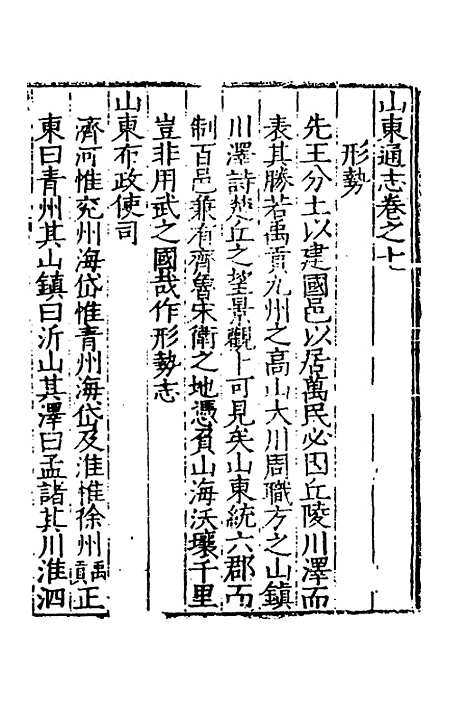 山東通志卷之七
形勢
先王分土以建國邑以居萬民必因丘陵川澤而
表其勝若禹貢九州之高山大川周職方之山鎮
川澤詩楚丘之望景觀卜可見矣山東統六郡而
制百邑兼有齊魯宋衛之地憑負山海沃壤千里
豈非用武之國哉作形勢志
山東布政使司
濟河惟兖州海岱惟青州海岱及淮惟徐州禹貢正
東曰青州其山鎮曰沂山其澤曰孟諸其川淮泗